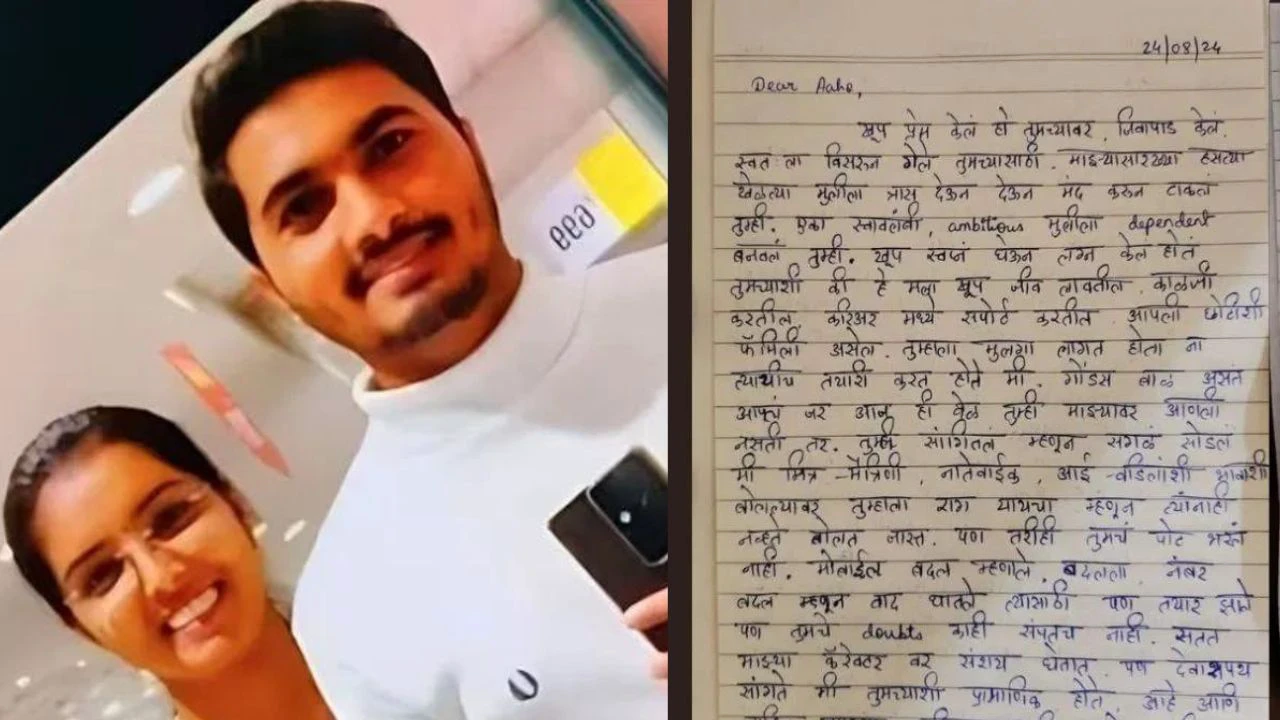 24/08/24
Dear Aaho,
खूप प्रेम केलं हो तुमच्यावर. जिवापाड केलं.
स्वतःला विसरून गेले तुमच्यासाठी. माझ्यासारख्या हसत्या
खेळत्या मुलीला त्रास देऊन देऊन मंद करून टाकलं
तुम्ही. एका स्वावलंबी, ambitious मुलीला dependent
बनवलं तुम्ही. खूप स्वप्नं घेऊन लग्न केलं होतं
तुमच्याशी की हे मला खूप जीव लावतील, काळजी
करतील, करिअर मध्ये सपोर्ट करतील. आपली छोटीशी
फॅमिली असेल. तुम्हाला मुलगा लागत होता ना
त्याचीच तयारी करत होते मी. गोंडस बाळ असतं
आपलं जर आज ही वेळ तुम्ही माझ्यावर आणली
नसती तर. तुम्ही सांगितलं म्हणून सगळं सोडलं
मी मित्र-मैत्रिणी, नातेवाईक, आई-वडिलांशी भावाशी
बोलल्यावर तुम्हाला राग यायचा म्हणून त्यांनाही
नव्हते बोलत जास्त. पण तरीही तुमचं पोट भरलं
नाही. मोबाईल बदल म्हणाले, बदलला नंबर
बदल म्हणून वाद घातले त्यासाठी पण तयार झाले
पण तुमचे doubts काही संपतच नाही. सतत
माझ्या कॅरेक्टर वर संशय घेतात. पण देवाशपथ
सांगते मी तुमच्याशी प्रामाणिक होते, आहे आणि